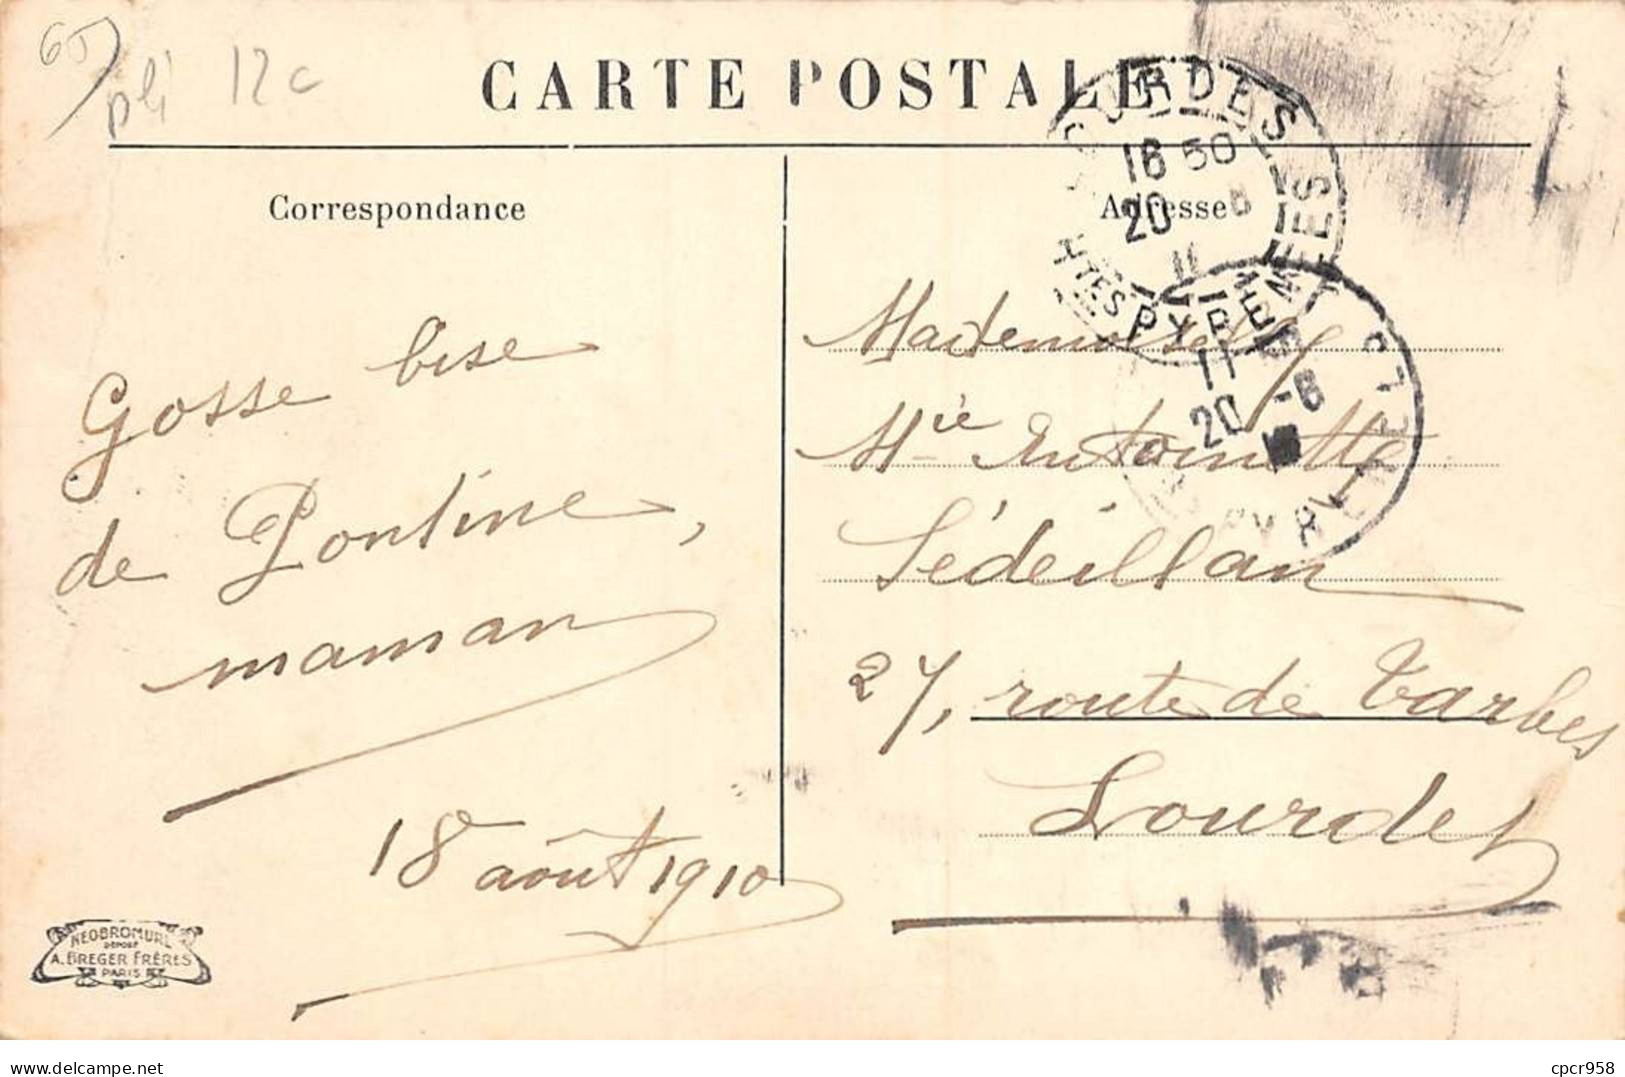 pli 12c
CARTE POSTALE
Correspondance
Adresse
LOURDES
16 50
20 8
HTES PYRENEES
11
20 -8
Gosse bise
de Pontine,
maman
18 août 1910
Mademoiselle
Mie Antoinette
Sédeillan
27, route de Tarbes
Lourdes
NEOBROMURE
DÉPOSÉ
A. BREGER FRÈRES
PARIS
cpcr958